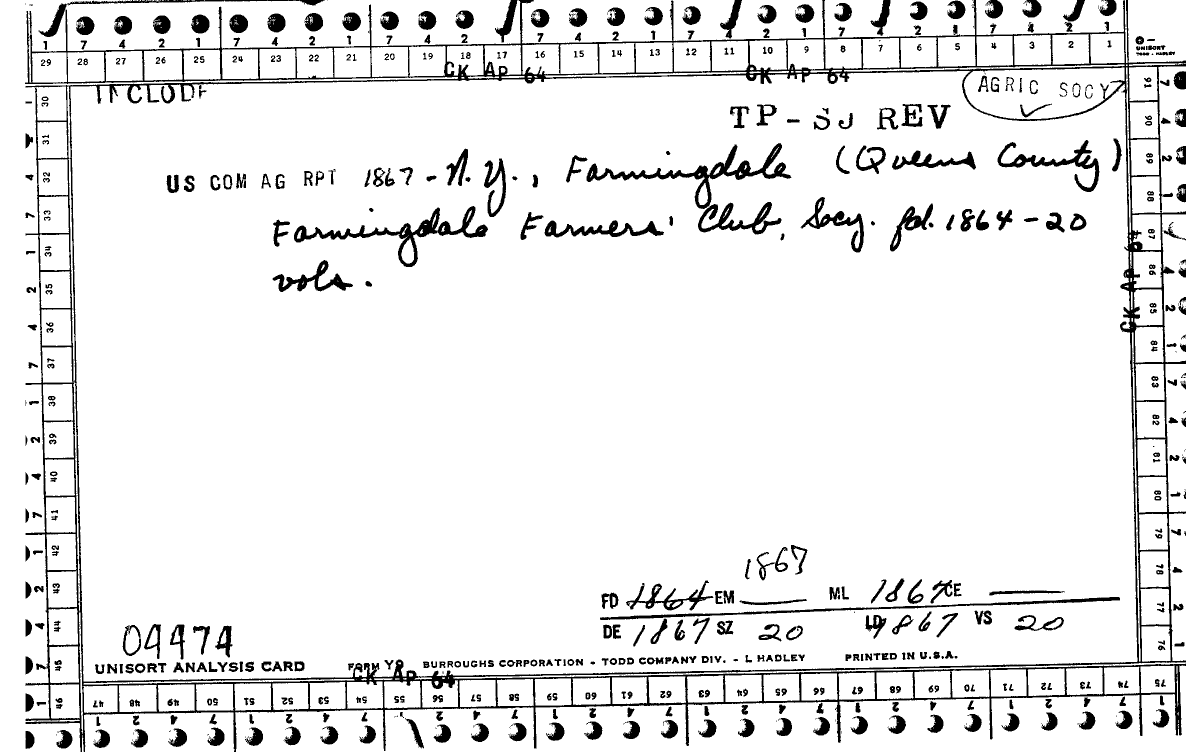 1 7 4 2 1 7 4 2 1 7 4 2 1 7 4 2 1 7 4 2 1 7 4 2 1 7 4 2 1
29 28 27 26 25 24 23 22 21 20 19 18 17 16 15 14 13 12 11 10 9 8 7 6 5 4 3 2 1
UNISORT
TODD - HADLEY
CK AP 64 CK AP 64
INCLUDE AGRIC SOCY
TP-SJ REV
US COM AG RPT 1867 - N. Y., Farmingdale (Queens County)
Farmingdale Farmers' Club, Socy. fd. 1864-20
vols.
30 31 32 33 34 35 36 37 38 39 40 41 42 43 44 45 46
91 90 89 88 87 86 85 84 83 82 81 80 79 78 77 76
CK AP 64
1867
FD 1864 EM ML 1867 CE
DE 1867 SZ 20 LD 1867 VS 20
04474
UNISORT ANALYSIS CARD FORM Y9 BURROUGHS CORPORATION - TODD COMPANY DIV. - L HADLEY PRINTED IN U.S.A.
CK AP 64
47 48 49 50 51 52 53 54 55 56 57 58 59 60 61 62 63 64 65 66 67 68 69 70 71 72 73 74 75